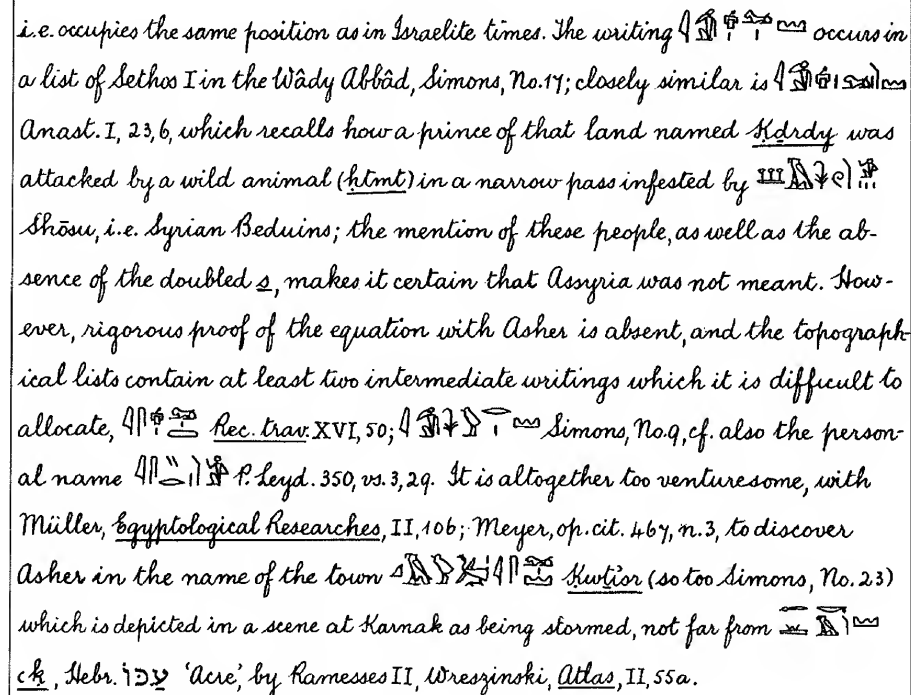 i.e. occupies the same position as in Israelite times. The writing occurs in
a list of Sethos I in the Wâdy Abbâd, Simons, No.17; closely similar is
Anast. I, 23,6, which recalls how a prince of that land named Ḳḏrdy was
attacked by a wild animal (ḥtmt) in a narrow pass infested by
Shōsu, i.e. Syrian Beduins; the mention of these people, as well as the ab-
sence of the doubled s, makes it certain that Assyria was not meant. How-
ever, rigorous proof of the equation with Asher is absent, and the topograph-
ical lists contain at least two intermediate writings which it is difficult to
allocate, Rec. trav. XVI, 50; Simons, No.9, cf. also the person-
al name P. Leyd. 350, vs. 3, 29. It is altogether too venturesome, with
Müller, Egyptological Researches, II, 106; Meyer, op. cit. 467, n.3, to discover
Asher in the name of the town Ḳwtisr (so too Simons, No. 23)
which is depicted in a scene at Karnak as being stormed, not far from
ꜥk, Hebr. עכו 'Acre', by Ramesses II, Wreszinski, Atlas, II, 55a.